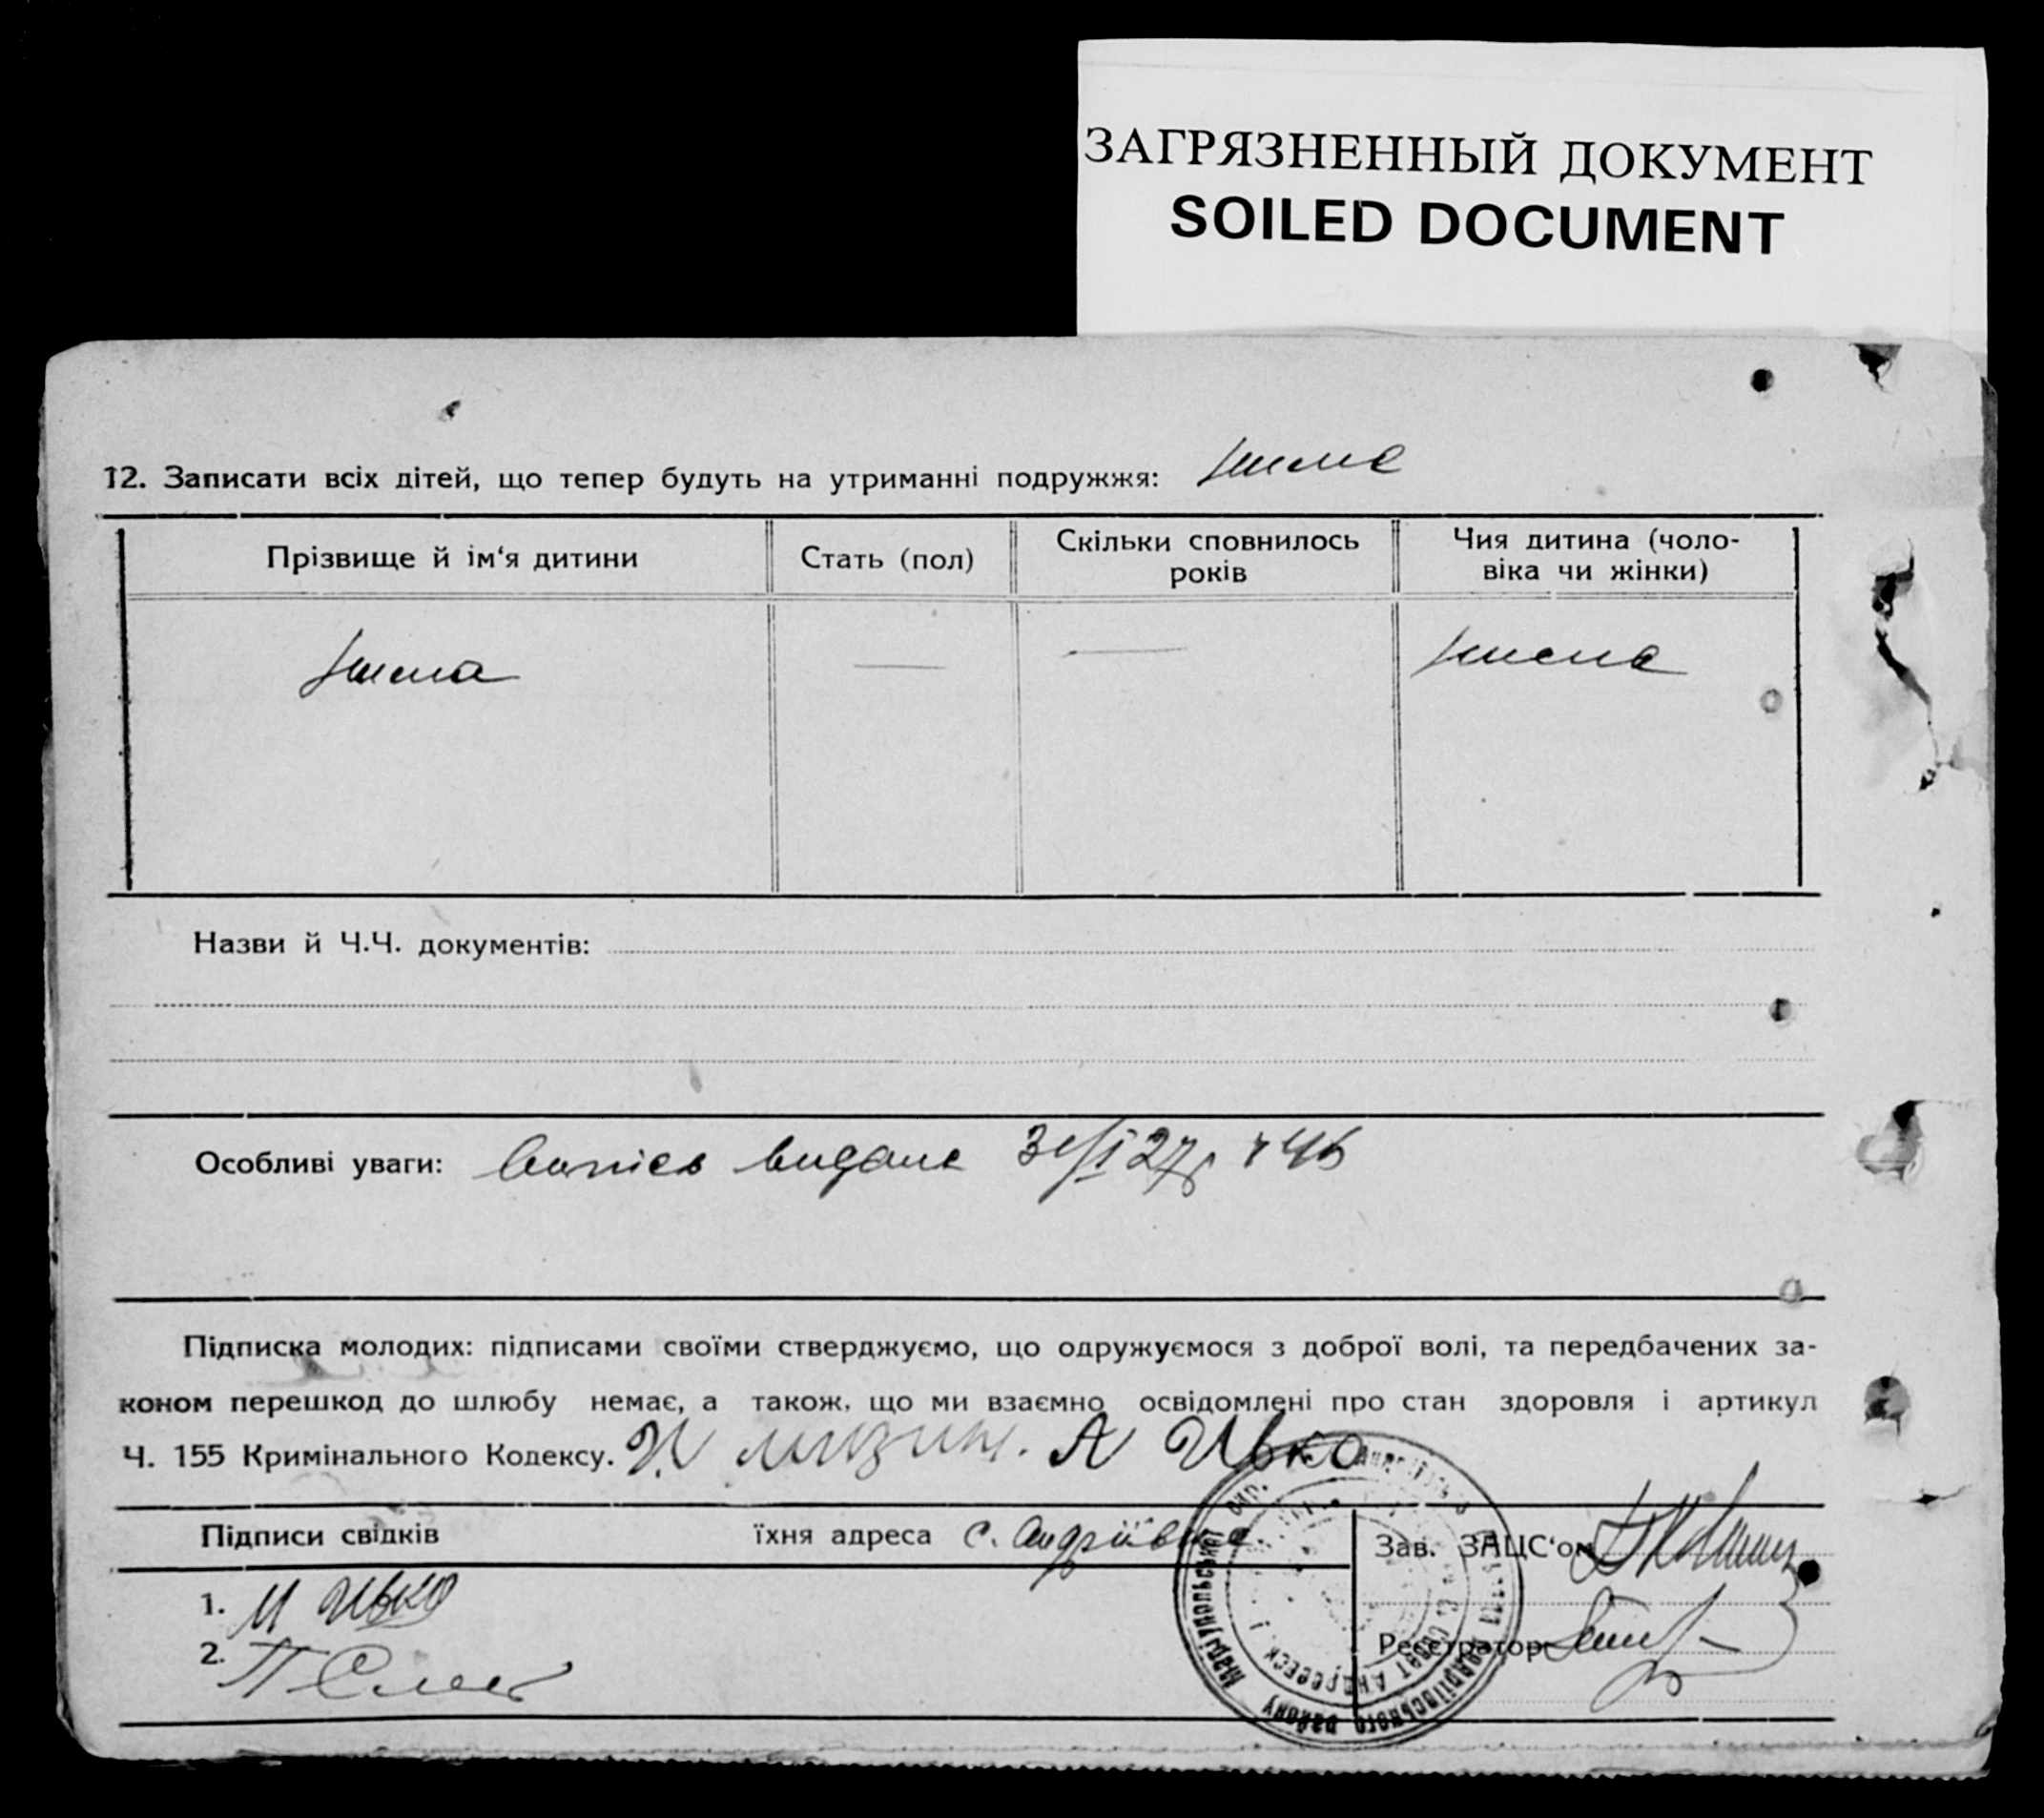 ЗАГРЯЗНЕННЫЙ ДОКУМЕНТ
SOILED DOCUMENT
12. Записати всіх дітей, що тепер будуть на утриманні подружжя: нема
Прізвище й ім‘я дитини
Стать (пол)
Скільки сповнилось
років
Чия дитина (чоло-
віка чи жінки)
нема — — нема
Назви й Ч.Ч. документів:
Особливі уваги: видана 31/I 27р
Підписка молодих: підписами своїми стверджуємо, що одружуємося з доброї волі, та передбачених за-
коном перешкод до шлюбу немає, а також, що ми взаємно освідомлені про стан здоровля і артикул
Ч. 155 Кримінального Кодексу. А Цько
Підписи свідків їхня адреса с. Андріївка. Зав. ЗАЦС‘ом
1. М Цько
2. Реєстратор